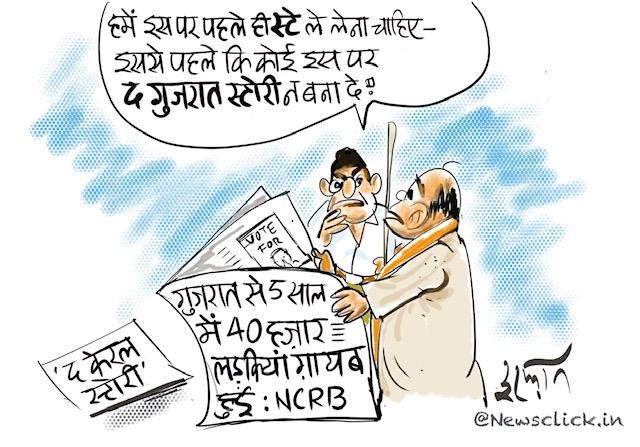 हमें इस पर पहले ही स्टे ले लेना चाहिए–
इससे पहले कि कोई इस पर
द गुजरात स्टोरी न बना दे!!
VOTE
FOR
गुजरात से 5 साल
में 40 हज़ार
लड़कियां ग़ायब
हुई : NCRB
'द केरल
स्टोरी'
इरफ़ान
@Newsclick.in